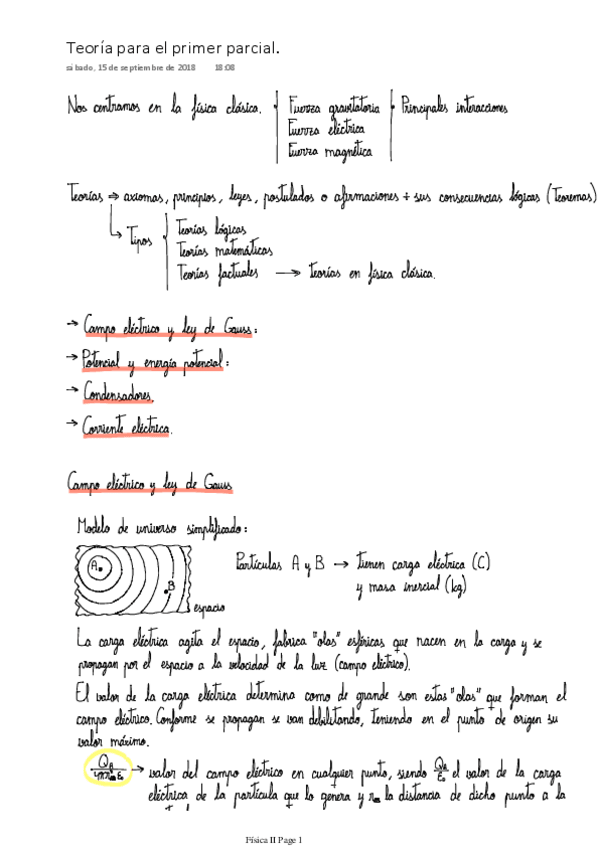 Teoría para el primer parcial.
sábado, 15 de septiembre de 2018 18:08
Nos centramos en la física clásica. Fuerza gravitatoria Principales interacciones
Fuerza eléctrica
Fuerza magnética
Teorías ⇒ axiomas, principios, leyes, postulados o afirmaciones + sus consecuencias lógicas (Teoremas)
Tipos Teorías lógicas
Teorías matemáticas
Teorías factuales → Teorías en física clásica.
→ Campo eléctrico y ley de Gauss:
→ Potencial y energía potencial:
→ Condensadores.
→ Corriente eléctrica.
Campo eléctrico y ley de Gauss
Modelo de universo simplificado:
A B espacio
Partículas A y B → Tienen carga eléctrica (C)
y masa inercial (kg)
La carga eléctrica agita el espacio, fabrica "olas" esféricas que nacen en la carga y se
propagan por el espacio a la velocidad de la luz (campo eléctrico).
El valor de la carga eléctrica determina como de grande son estas "olas" que forman el
campo eléctrico. Conforme se propagan se van debilitando, teniendo en el punto de origen su
valor máximo.
→ valor del campo eléctrico en cualquier punto, siendo el valor de la carga
eléctrica de la partícula que lo genera y la distancia de dicho punto a la
Física II Page 1